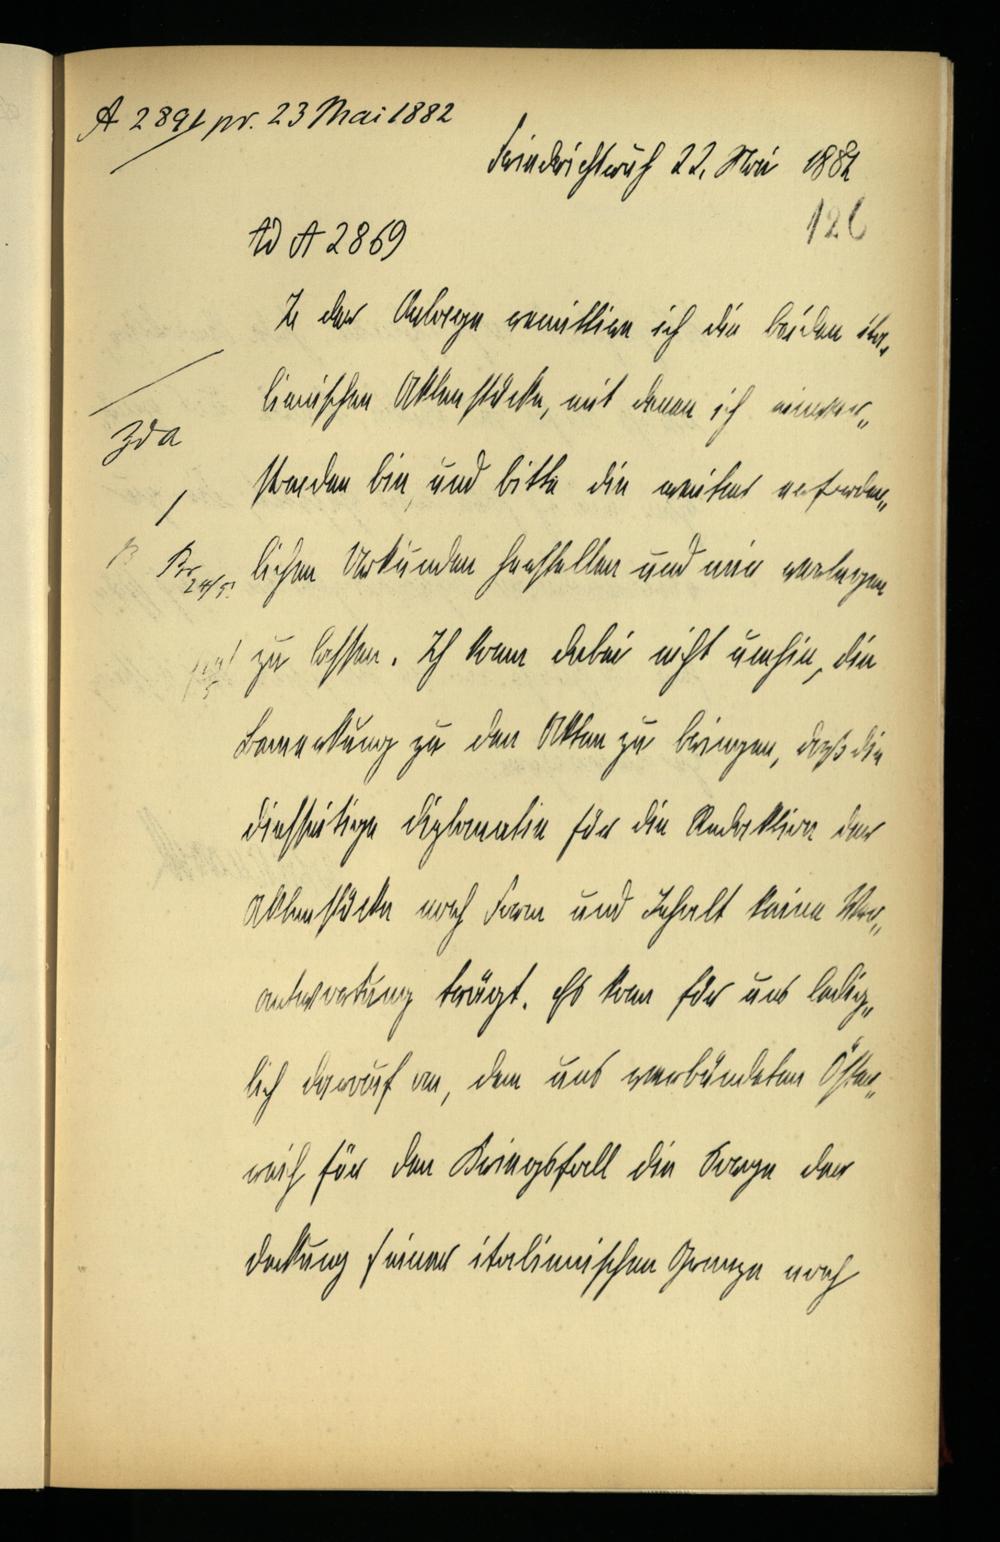 A 2891 pr. 23 Mai 1882
Friedrichsruh 22. Mai 1882
126
Ad A 2869
In der Anlage remittire ich die beiden ita-
lienischen Aktenstücke, mit denen ich einver-
standen bin, und bitte die weiter erforder-
lichen Urkunden herstellen und mir vorlegen
zu lassen. Ich kann dabei nicht umhin, die
Bemerkung zu den Akten zu bringen, daß die
diesseitige Diplomatie für die Redaktion der
Aktenstücke nach Form und Inhalt keine Ver-
antwortung trägt. Es kam für uns ledig-
lich darauf an, dem uns verbündeten Öster-
reich für den Kriegsfall die Sorge der
Deckung seiner italienischen Grenze nach
zda
24/5.